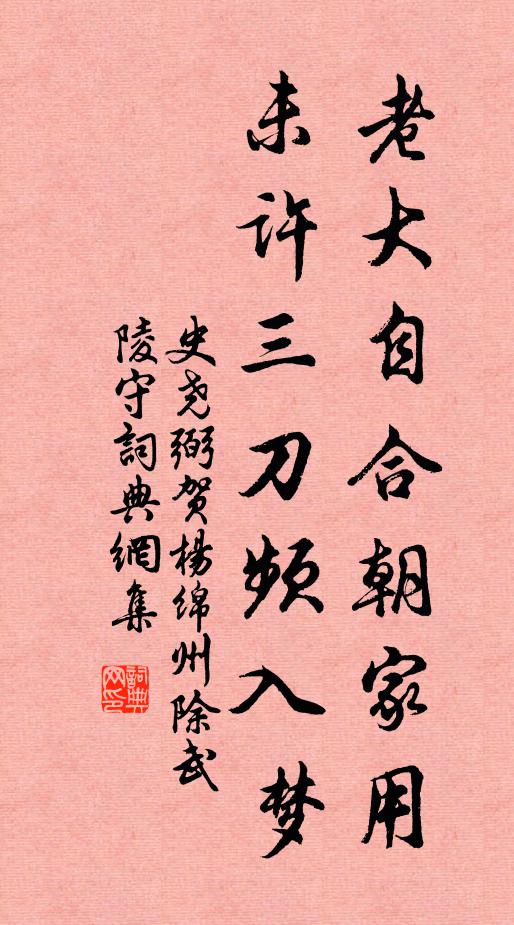 老大自合朝家用
未许三刀频入梦
史尧弼贺杨绵州除武
陵守詞典網集
詞典
网印